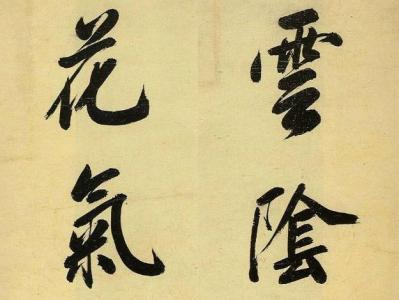 雲陰
花氣